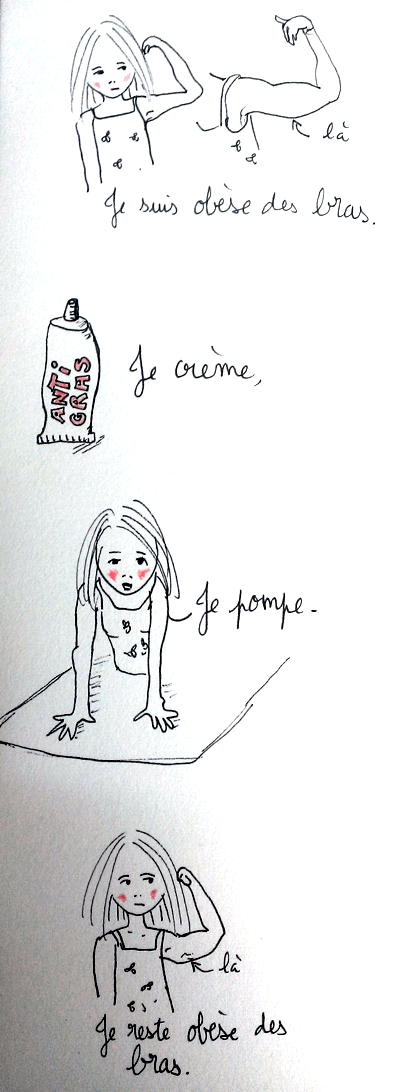 là
Je suis obèse des bras.
ANTI
GRAS
Je crème,
Je pompe-
là
Je reste obèse des
bras.